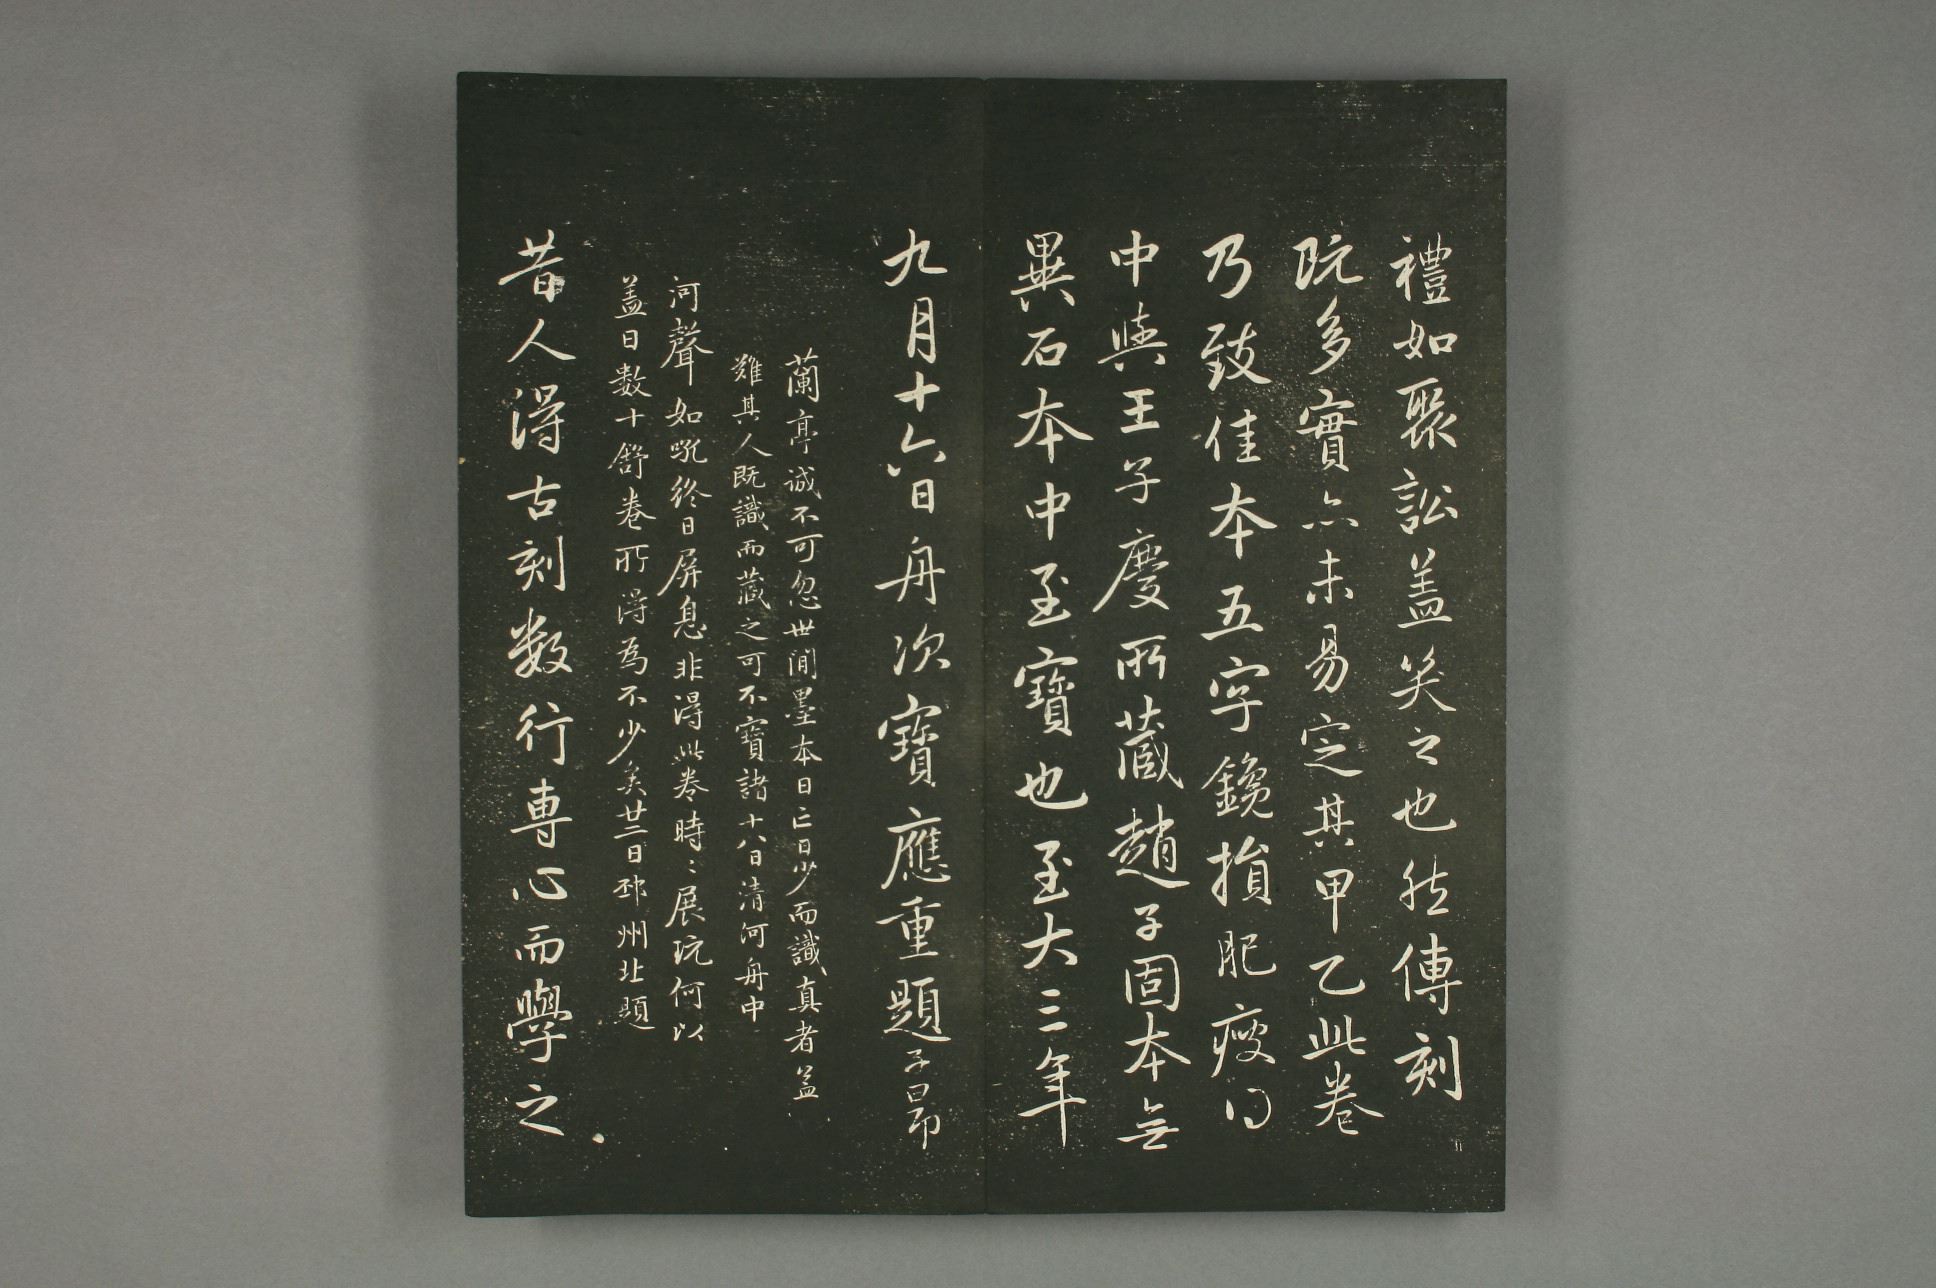 禮如聚訟盖笑之也然傳刻
既多實亦未易定其甲乙此卷
乃致佳本五字鑱損肥瘦得
中與王子慶所藏趙子固本無
異石本中至寶也至大三年
九月十六日舟次寶應重題子昂
蘭亭誠不可忽世間墨本日亡日少而識真者盖
難其人既識而藏之可不寶諸十八日清河舟中
河聲如吼終日屏息非得此卷時〻展玩何以
盖日數十舒卷所得為不少矣廿二日邳州北題
昔人得古刻数行専心而學之